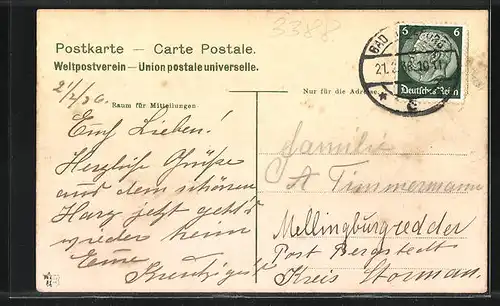 3388
Postkarte — Carte Postale.
Weltpostverein — Union postale universelle.
BAD
21.2.36.10-11
6 6
Deutsches Reich
21/2 36.
Raum für Mitteilungen
Nur für die Adresse
Ihr Lieben!
Herzliche Grüße
aus dem schönen
Harz jetzt geht's
wieder heim
Eure
Familie
A Timmermann
Mellingburgredder
Post Bergstedt
Kreis Storman.